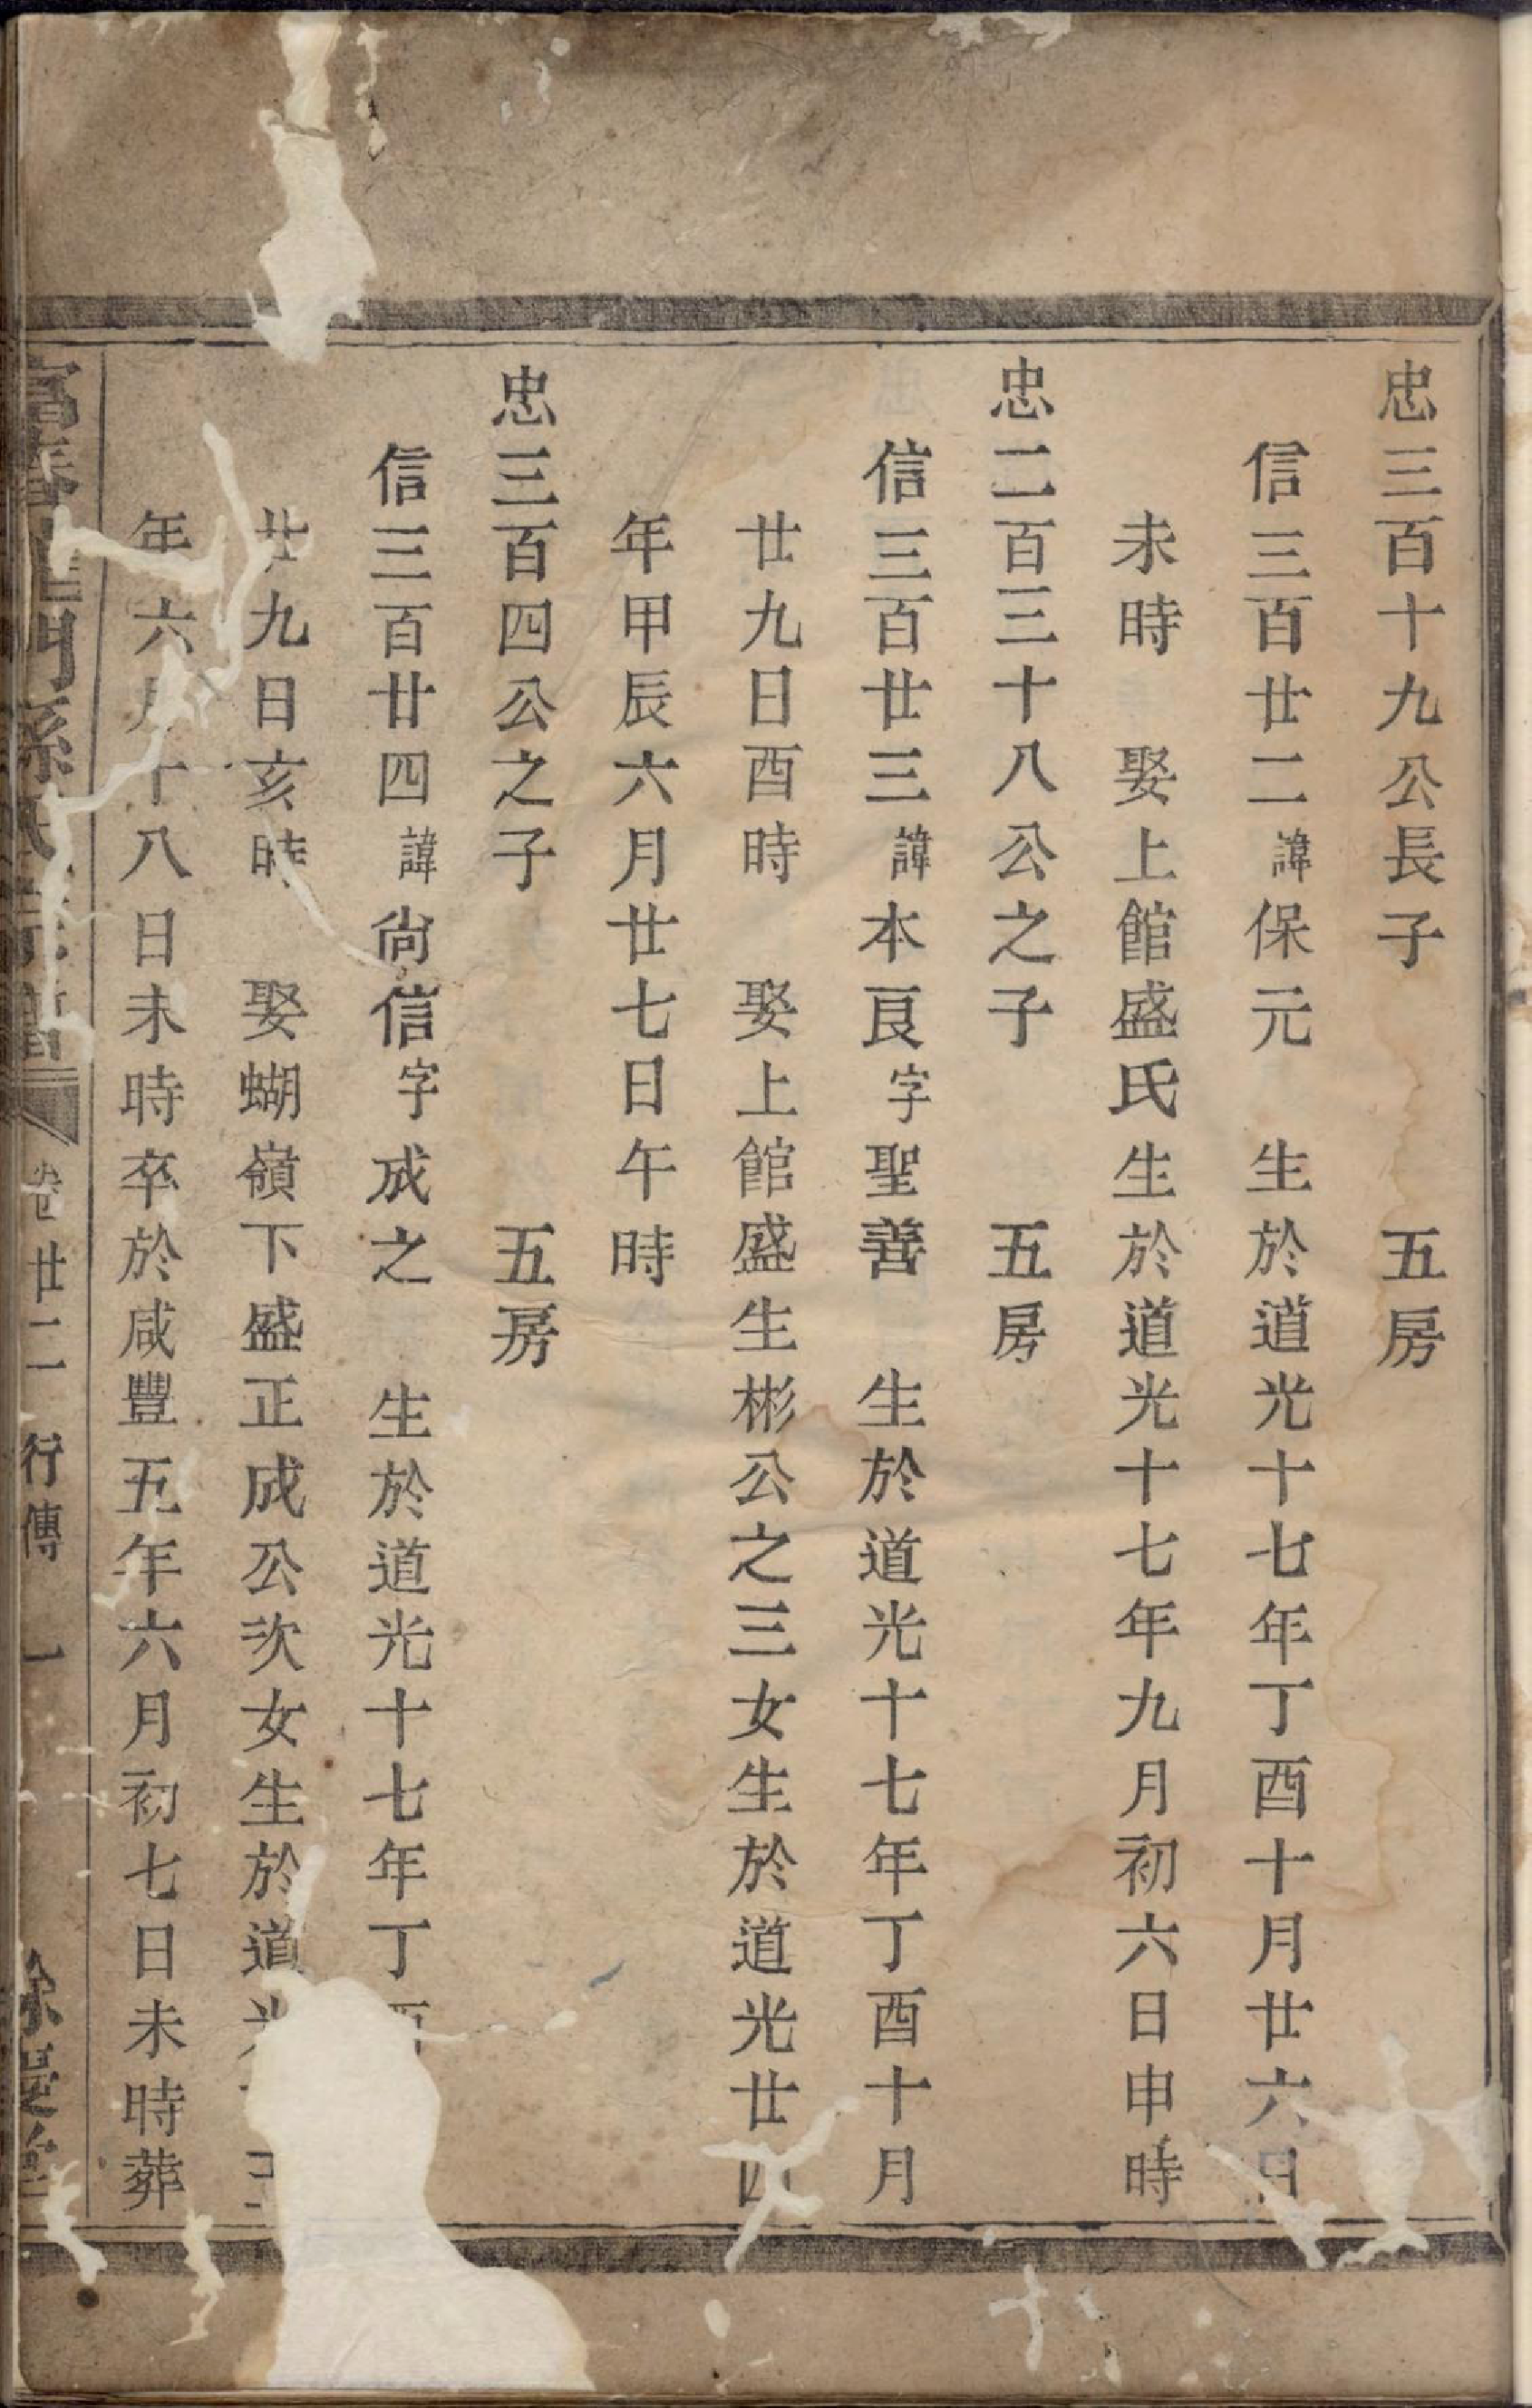 忠三百十九公長子　五房
信三百廿二諱保元　生於道光十七年丁酉十月廿六日
未時　娶上館盛氏生於道光十七年九月初六日申時
忠二百三十八公之子　五房
信三百廿三諱本良字聖善　生於道光十七年丁酉十月
廿九日酉時　娶上館盛生彬公之三女生於道光廿四
年甲辰六月廿七日午時
忠三百四公之子　五房
信三百廿四諱尙信字成之　生於道光十七年丁
廿九日亥時　娶蝴嶺下盛正成公次女生於道光
年六月十八日未時卒於咸豐五年六月初七日未時葬
富春龍門孫氏宗譜　卷廿二　行傳　一　餘慶堂